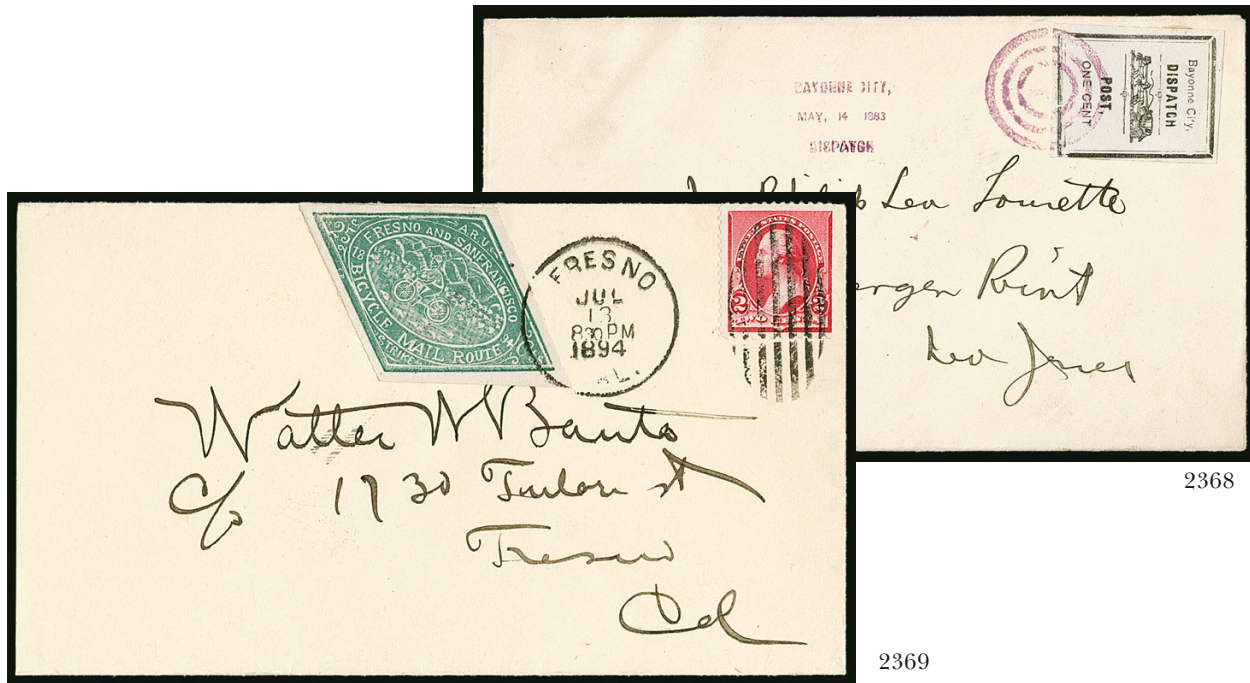 BAYONNE CITY,
MAY, 14 1883
DISPATCH
Bayonne City,
DISPATCH
POST,
ONE CENT
Lea Lourette
ergen Point
New Jersey
2368
A.R.U.
FRESNO AND SAN FRANCISCO
18 BICYCLE MAIL ROUTE 94
STRIKE
FRESNO
JUL
13
830 PM
1894
AL.
UNITED STATES POSTAGE
2 2
Walter N Banta
c/o 1730 Tulare st
Fresno
Cal
2369